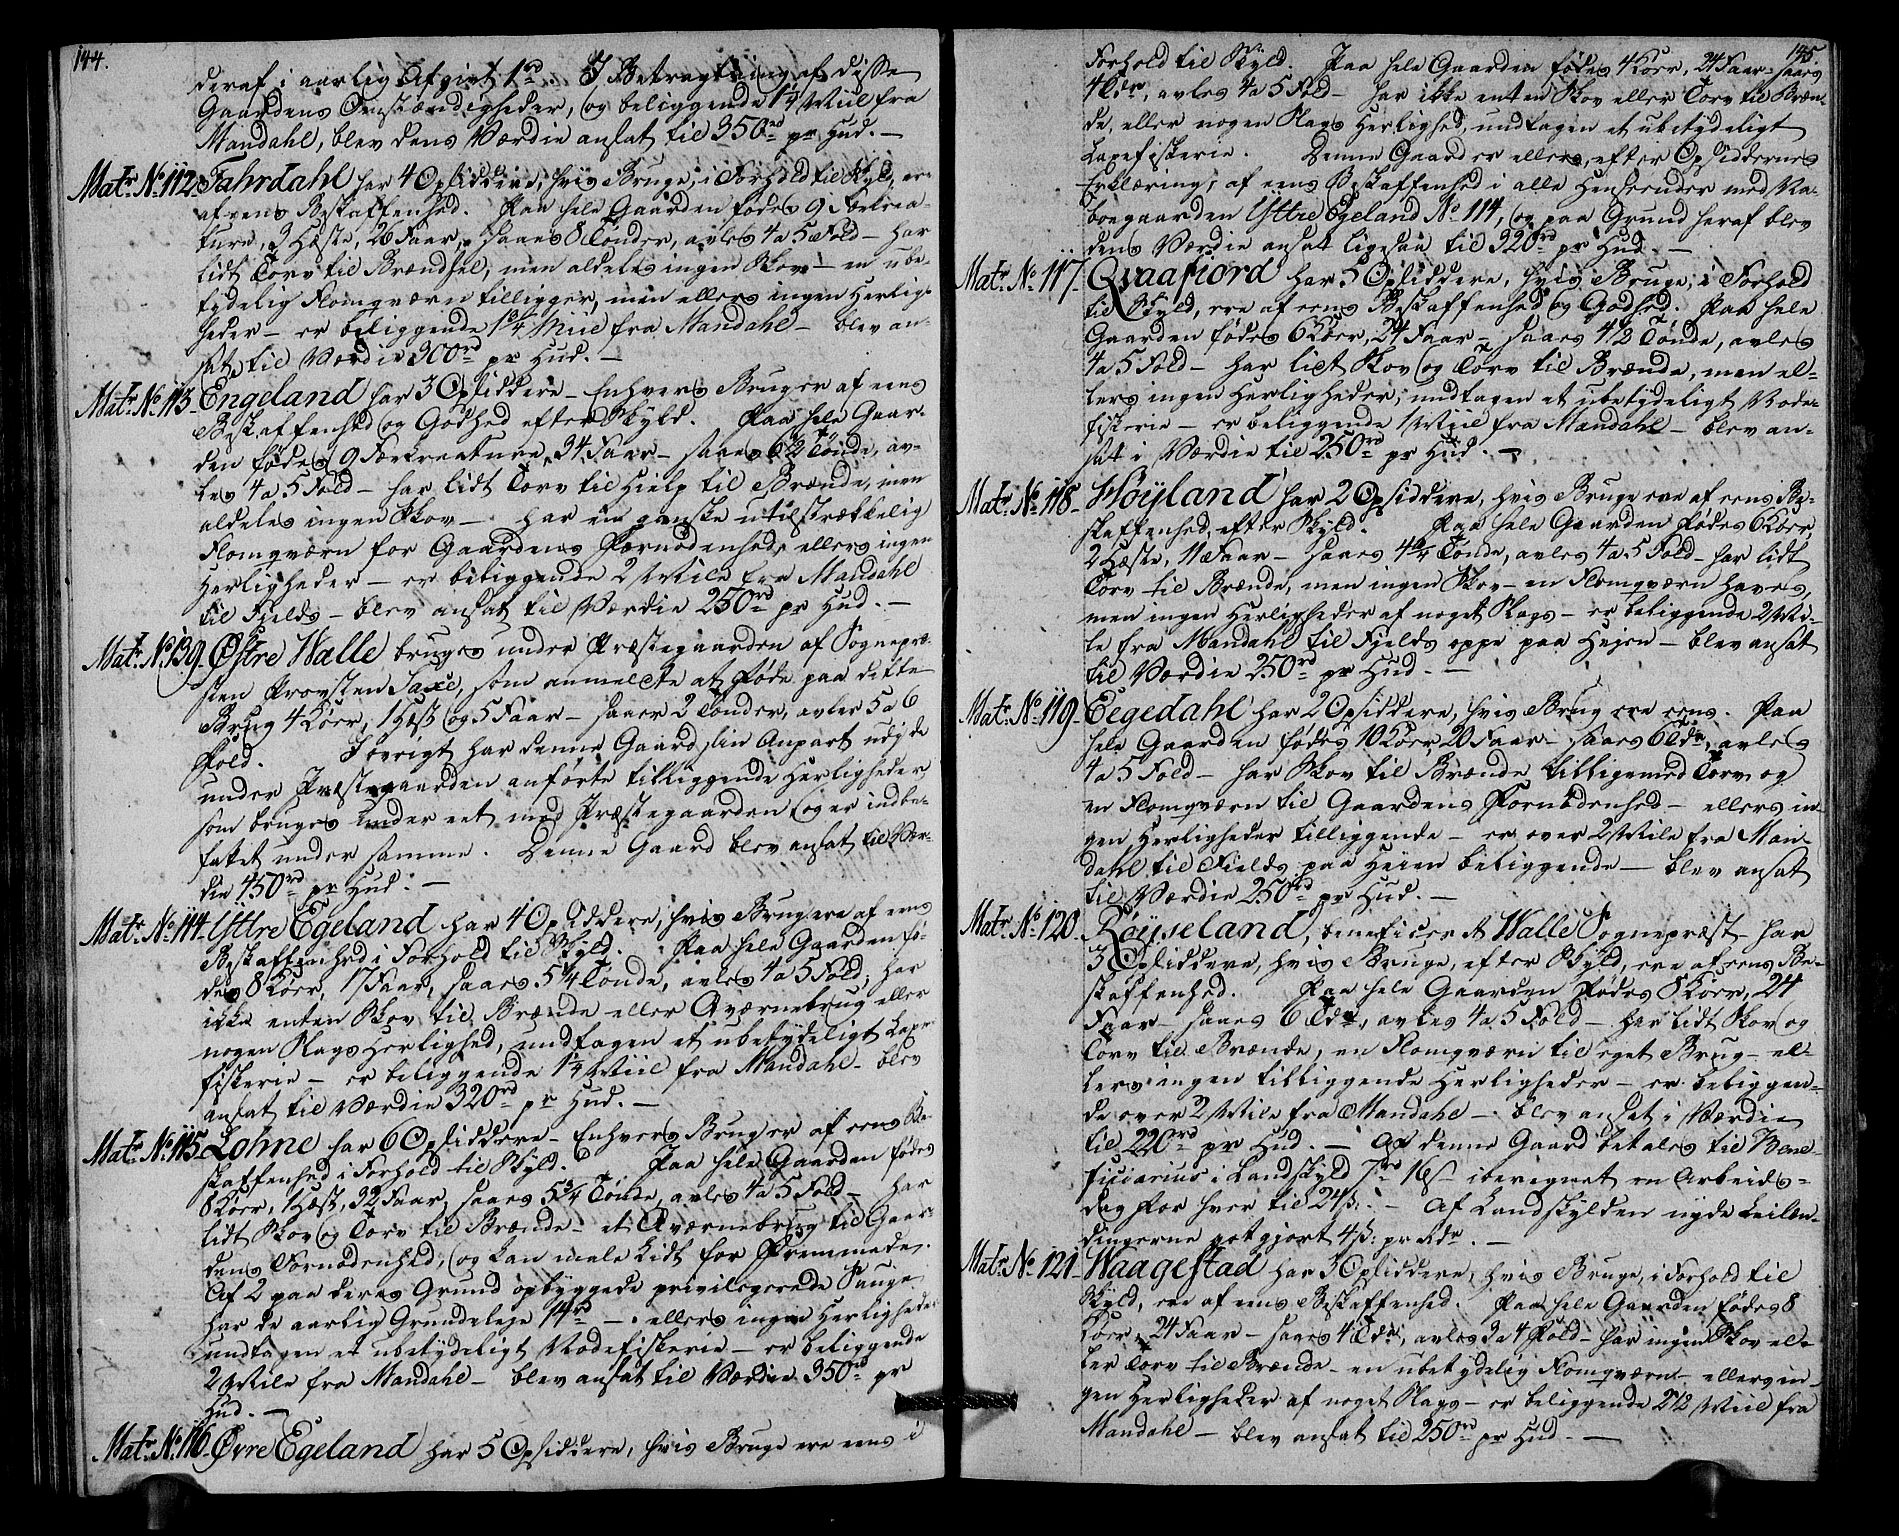 144.
deraf i aarlig Afgivt 1rd. I Betragtning af disse
Gaardens Omstændigheder, og beliggende 1¼ Miil fra
Mandahl, blev dens Værdie ansat til 350rd pr Hud. –
Matr. No. 112. Fahrdahl har 4 Opsiddere, hvis Bruge, i Forhold til Skyld, er
af eens Beskaffenhed. Paa hele Gaarden fødes 9 Fækrea-
ture, 3 Hæste, 26 Faar, saaes 8 Tønder, avles 4 a 5 Fold – har
lidt Torv til Brændsel, men aldeles ingen Skov – en ube-
tydelig Flomqværn tilligger, men ellers ingen Herlig-
heder – er beliggende 1¾ Miil fra Mandahl – blev an-
sat til Værdie 300rd pr Hud. –
Matr. No. 113. Engeland har 3 Opsiddere – Enhvers Brug er af eens
Beskaffenhed og Godhed efter Skyld. Paa hele Gaar-
den fødes 9 Fækreature, 34 Faar – saaes 6½ Tønde, av-
les 4 a 5 Fold – har lidt Torv til Hielp til Brænde, men
aldeles ingen Skov – har en ganske utilstrækkelig
Flomqværn for Gaardens Fornødenhed, ellers ingen
Herligheder – er beliggende 2 Mile fra Mandahl
til Fields – blev ansat til Værdie 250rd pr Hud. –
Matr. No. 139. Østre Walle bruges under Præstegaarden af Sognepræ-
sten Provsten Saxe, som anmeldte at føde paa dette
Brug 4 Køer, 1 Hæst og 5 Faar – saaer 3 Tønder, avler 5 a 6
Fold. I øvrigt har denne Gaard sin Anpart udi de
under Præstegaarden anførte tilliggende Herligheder
som bruges under eet med Præstegaarden og er indbe-
fattet under samme. Denne Gaard blev ansat til Vær-
die 450rd pr Hud. –
Matr. No. 114. Yttre Egeland har 4 Opsiddere, hvis Brug ere af eens
Beskaffenhed i Forhold til Skyld. Paa hele Gaarden fø-
des 8 Køer, 17 Faar, saaes 5¼ Tønde, avles 4 a 5 Fold, har
ikke enten Skov til Brænde eller Qværnebrug eller
nogen Slags Herlighed, undtagen et ubetydeligt Laxe-
fiskerie – er beliggende 1¼ Miil fra Mandahl – blev
ansat til Værdie 320rd pr Hud. –
Matr. No. 115. Lohne har 6 Opsiddere – Enhvers Brug er af eens Be-
skaffenhed i Forhold til Skyld. Paa hele Gaarden fødes
8 Køer, 1 Hæst, 32 Faar, saaes 5¾ Tønde, avles 4 a 5 Fold – har
lidt Skov og Torv til Brænde – et Qværnebrug til Gaar-
dens Fornødenhed, og kan male lidt for Fremmede.
Af 2 paa deres Grund opbyggede privilegerede Sauge
har de aarlig Grundeleye 14rd – ellers ingen Herligheder
undtagen et ubetydeligt Nodefiskerie – er beliggende
2 Mile fra Mandahl – blev ansat til Værdie 350rd pr
Hud. –
Matr. No. 116. Øvre Egeland har 5 Opsiddere, hvis Bruge ere eens i
145.
Forhold til Skyld. Paa hele Gaarden fødes 4 Køer, 24 Faar – saaes
4 Tdr, avles 4 a 5 Fold – har ikke enten Skov eller Torv til Bræn-
de, eller nogen Slags Herlighed, undtagen et ubetydeligt
Laxefiskerie. Denne Gaard er ellers, efter Opsiddernes
Erklæring, af eens Beskaffenhed i alle Henseender med Na-
boegaarden Yttre Egeland No. 114, og paa Grund heraf blev
dens Værdie ansat ligesaa til 320rd pr Hud. –
Matr. No. 117. Qvaafiord har 3 Opsiddere, hvis Bruge, i Forhold
til Skyld, ere af eens Beskaffenhed og Godhed. Paa hele
Gaarden fødes 6 Køer, 24 Faar – saaes 4½ Tønde, avles
4 a 5 Fold – har lidt Skov og Torv til Brænde, men el-
lers ingen Herligheder, undtagen et ubetydeligt Node-
fiskerie – er beliggende 1 Miil fra Mandahl – blev an-
sat i Værdie til 250rd pr Hud. –
Matr. No. 118. Høyland har 2 Opsiddere, hvis Bruge ere af eens Be-
skaffenhed, efter Skyld. Paa hele Gaarden fødes 6 Køer,
2 Hæste, 11 Faar – saaes 4¾ Tønde, avles 4 a 5 Fold – har lidt
Torv til Brænde, men ingen Skov – en Flomqværn haves,
men ingen Herligheder af noget Slags – er beliggende 2 Mi-
le fra Mandahl til Fields oppe paa Heien – blev ansat
til Værdie 250rd pr Hud. –
Matr. No. 119. Eegedahl har 2 Opsiddere, hvis Brug ere eens. Paa
hele Gaarden fødes 10 Køer, 20 Faar – saaes 6 Tdr, avles
4 a 5 Fold – har Skov til Brænde tilligemed Torv og
en Flomqværn til Gaardens Fornødenhed – ellers in-
gen Herligheder tilliggende – er over 2 Mile fra Man-
dahl til Fields paa Heien beliggende – blev ansat
til Værdie 250rd pr Hud. –
Matr. No. 120. Røyseland, beneficeret Walle Sognepræst – har
3 Opsiddere, hvis Bruge, efter Skyld, ere af eens Be-
skaffenhed. Paa hele Gaarden fødes 8 Køer, 24
Faar – saaes 6 Tdr, avles 4 a 5 Fold – har lidt Skov og
Torv til Brænde, en Flomqværn til eget Brug – el-
lers ingen tilliggende Herligheder – er beliggen-
de over 2 Mile fra Mandahl – blev ansat i Værdie
til 220rd pr Hud. – Af denne Gaard betales til Bene-
ficiarius i Landskyld 7rd 16ß iberegnet en Arbeids-
dag for hver til 24ß. – Af Landskylden nyde Leilæn-
dingerne got gjort 4ß pr Rdr. –
Matr. No. 121. Waagestad har 3 Opsiddere, hvis Bruge, i Forhold til
Skyld, ere af eens Beskaffenhed. Paa hele Gaarden fødes 8
Køer, 24 Faar – saaes 4 Tdr, avles 3 a 4 Fold – har ingen Skov el-
ler Torv til Brænde – en ubetydelig Flomqværn – ellers in-
gen Herligheder af noget Slags – er beliggende 2½ Miil fra
Mandahl – blev ansat til 250rd pr Hud. –